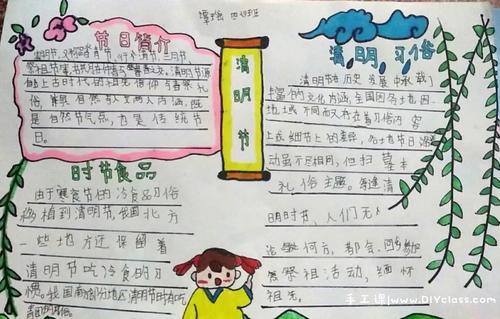 四(3)班
节日简介
清明节,又称踏青节、行清节、三月节、
祭祖节等
上古时代的祖先信仰与春祭礼
俗。兼具自然与人文两大内涵,既
是自然节气点,也是传统节
日。
清明节
清明习俗
清明节在历史发展中承载了
丰富的文化内涵,全国因各地因
地域不同而又存在着习俗内容
上或细节上的差异,各地节日活
动虽不尽相同,但扫墓
礼俗主题。每逢清
明时节,人们无
论何方,都会回乡参加
祭祖活动,缅怀
祖先。
时节食品
由于寒食节的冷食品习俗
移植到清明节,我国北方
一些地方还保留着
清明节吃冷食的习
惯。我国南部分地区清明节时有吃
青团的
手工课|www.DIYclass.com